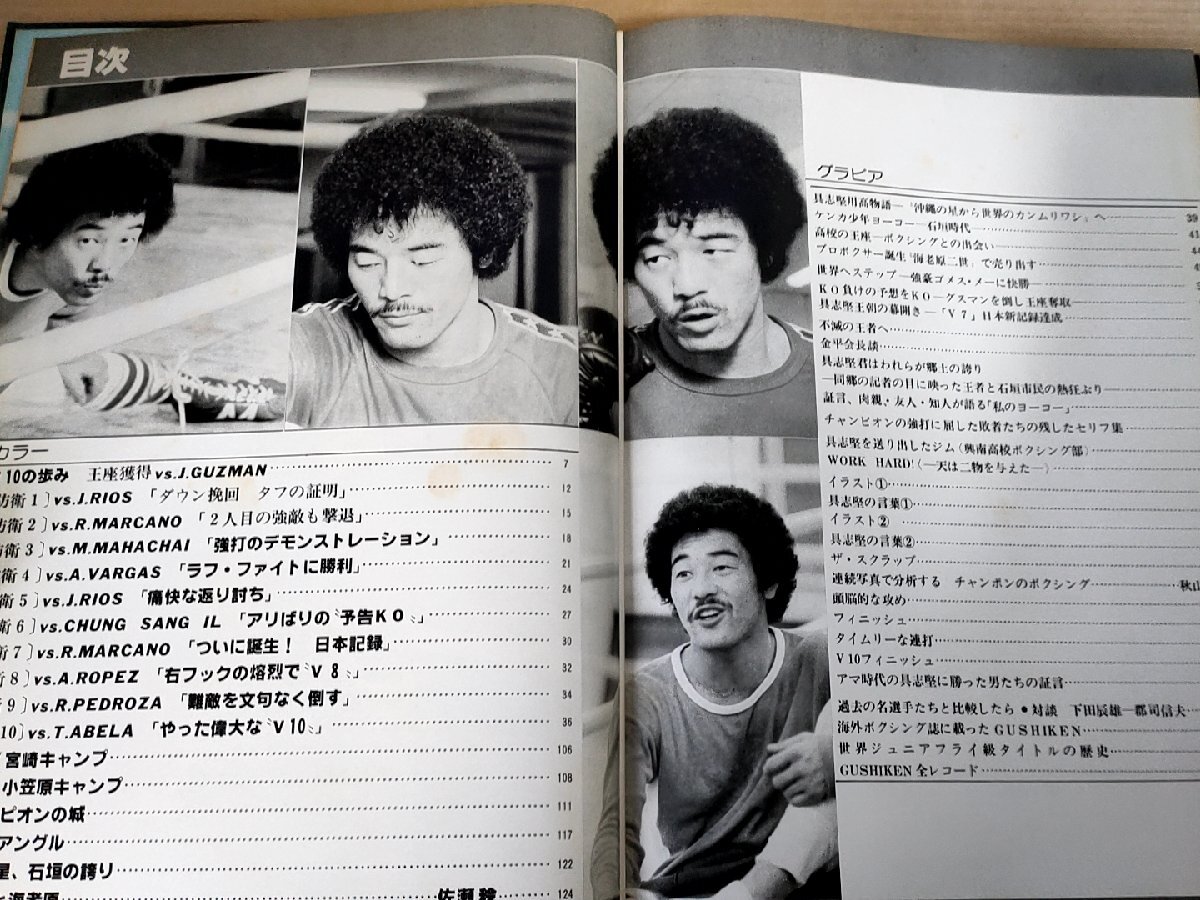 目次
カラー
10の歩み 王座獲得vs.J.GUZMAN 7
防衛1〕vs.J.RIOS 「ダウン挽回 タフの証明」 12
防衛2〕vs.R.MARCANO 「2人目の強敵も撃退」 15
防衛3〕vs.M.MAHACHAI 「強打のデモンストレーション」 18
衛4〕vs.A.VARGAS 「ラフ・ファイトに勝利」 21
衛5〕vs.J.RIOS 「痛快な返り討ち」 24
衛6〕vs.CHUNG SANG IL 「アリばりの〝予告KO〟」 27
衛7〕vs.R.MARCANO 「ついに誕生! 日本記録」 30
衛8〕vs.A.ROPEZ 「右フックの熔烈で〝V8〟」 32
9〕vs.R.PEDROZA 「難敵を文句なく倒す」 34
10〕vs.T.ABELA 「やった偉大な〝V10〟」 36
宮崎キャンプ 106
小笠原キャンプ 108
ピオンの城 111
アングル 117
星、石垣の誇り 122
海老原 佐瀬稔 124
グラビア
具志堅用高物語―『沖縄の星から世界のカンムリワシ』へ 39
ケンカ少年ヨーコー―石垣時代 41
高校の王座―ボクシングとの出会い 44
プロボクサー誕生『海老原二世』で売り出す
世界へステップ―強豪ゴメス・メーに快勝
KO負けの予想をKO―グスマンを倒し王座奪取
具志堅王朝の幕開き―「V7」日本新記録達成
不滅の王者へ
金平会長談
具志堅君はわれらが郷土の誇り
―同郷の記者の目に映った王者と石垣市民の熱狂ぶり
証言、肉親・友人・知人が語る「私のヨーコー」
チャンピオンの強打に屈した敗者たちの残したセリフ集
具志堅を送り出したジム(興南高校ボクシング部)
WORK HARD!(―天は二物を与えた―)
イラスト①
具志堅の言葉①
イラスト②
具志堅の言葉②
ザ・スクラップ
連続写真で分析する チャンポンのボクシング 秋山
頭脳的な攻め
フィニッシュ
タイムリーな連打
V10フィニッシュ
アマ時代の具志堅に勝った男たちの証言
過去の名選手たちと比較したら●対談 下田辰雄―郡司信夫
海外ボクシング誌に載ったGUSHIKEN
世界ジュニアフライ級タイトルの歴史
GUSHIKEN全レコード